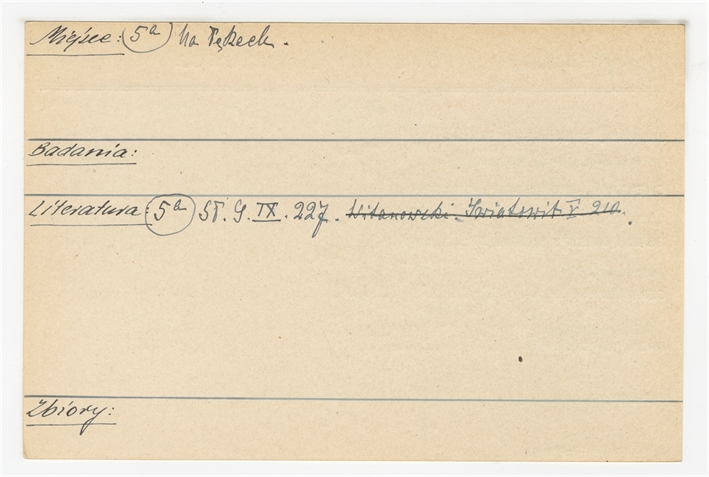 Miejsce: 5a Na Łękach.
Badania:
Literatura: 5a Sł. G. IX. 227. Witanowski Światowit V 210.
Zbiory: